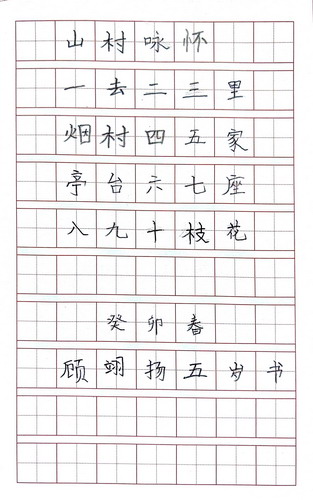 山村咏怀
一去二三里
烟村四五家
亭台六七座
八九十枝花
癸卯春
顾翊扬五岁书